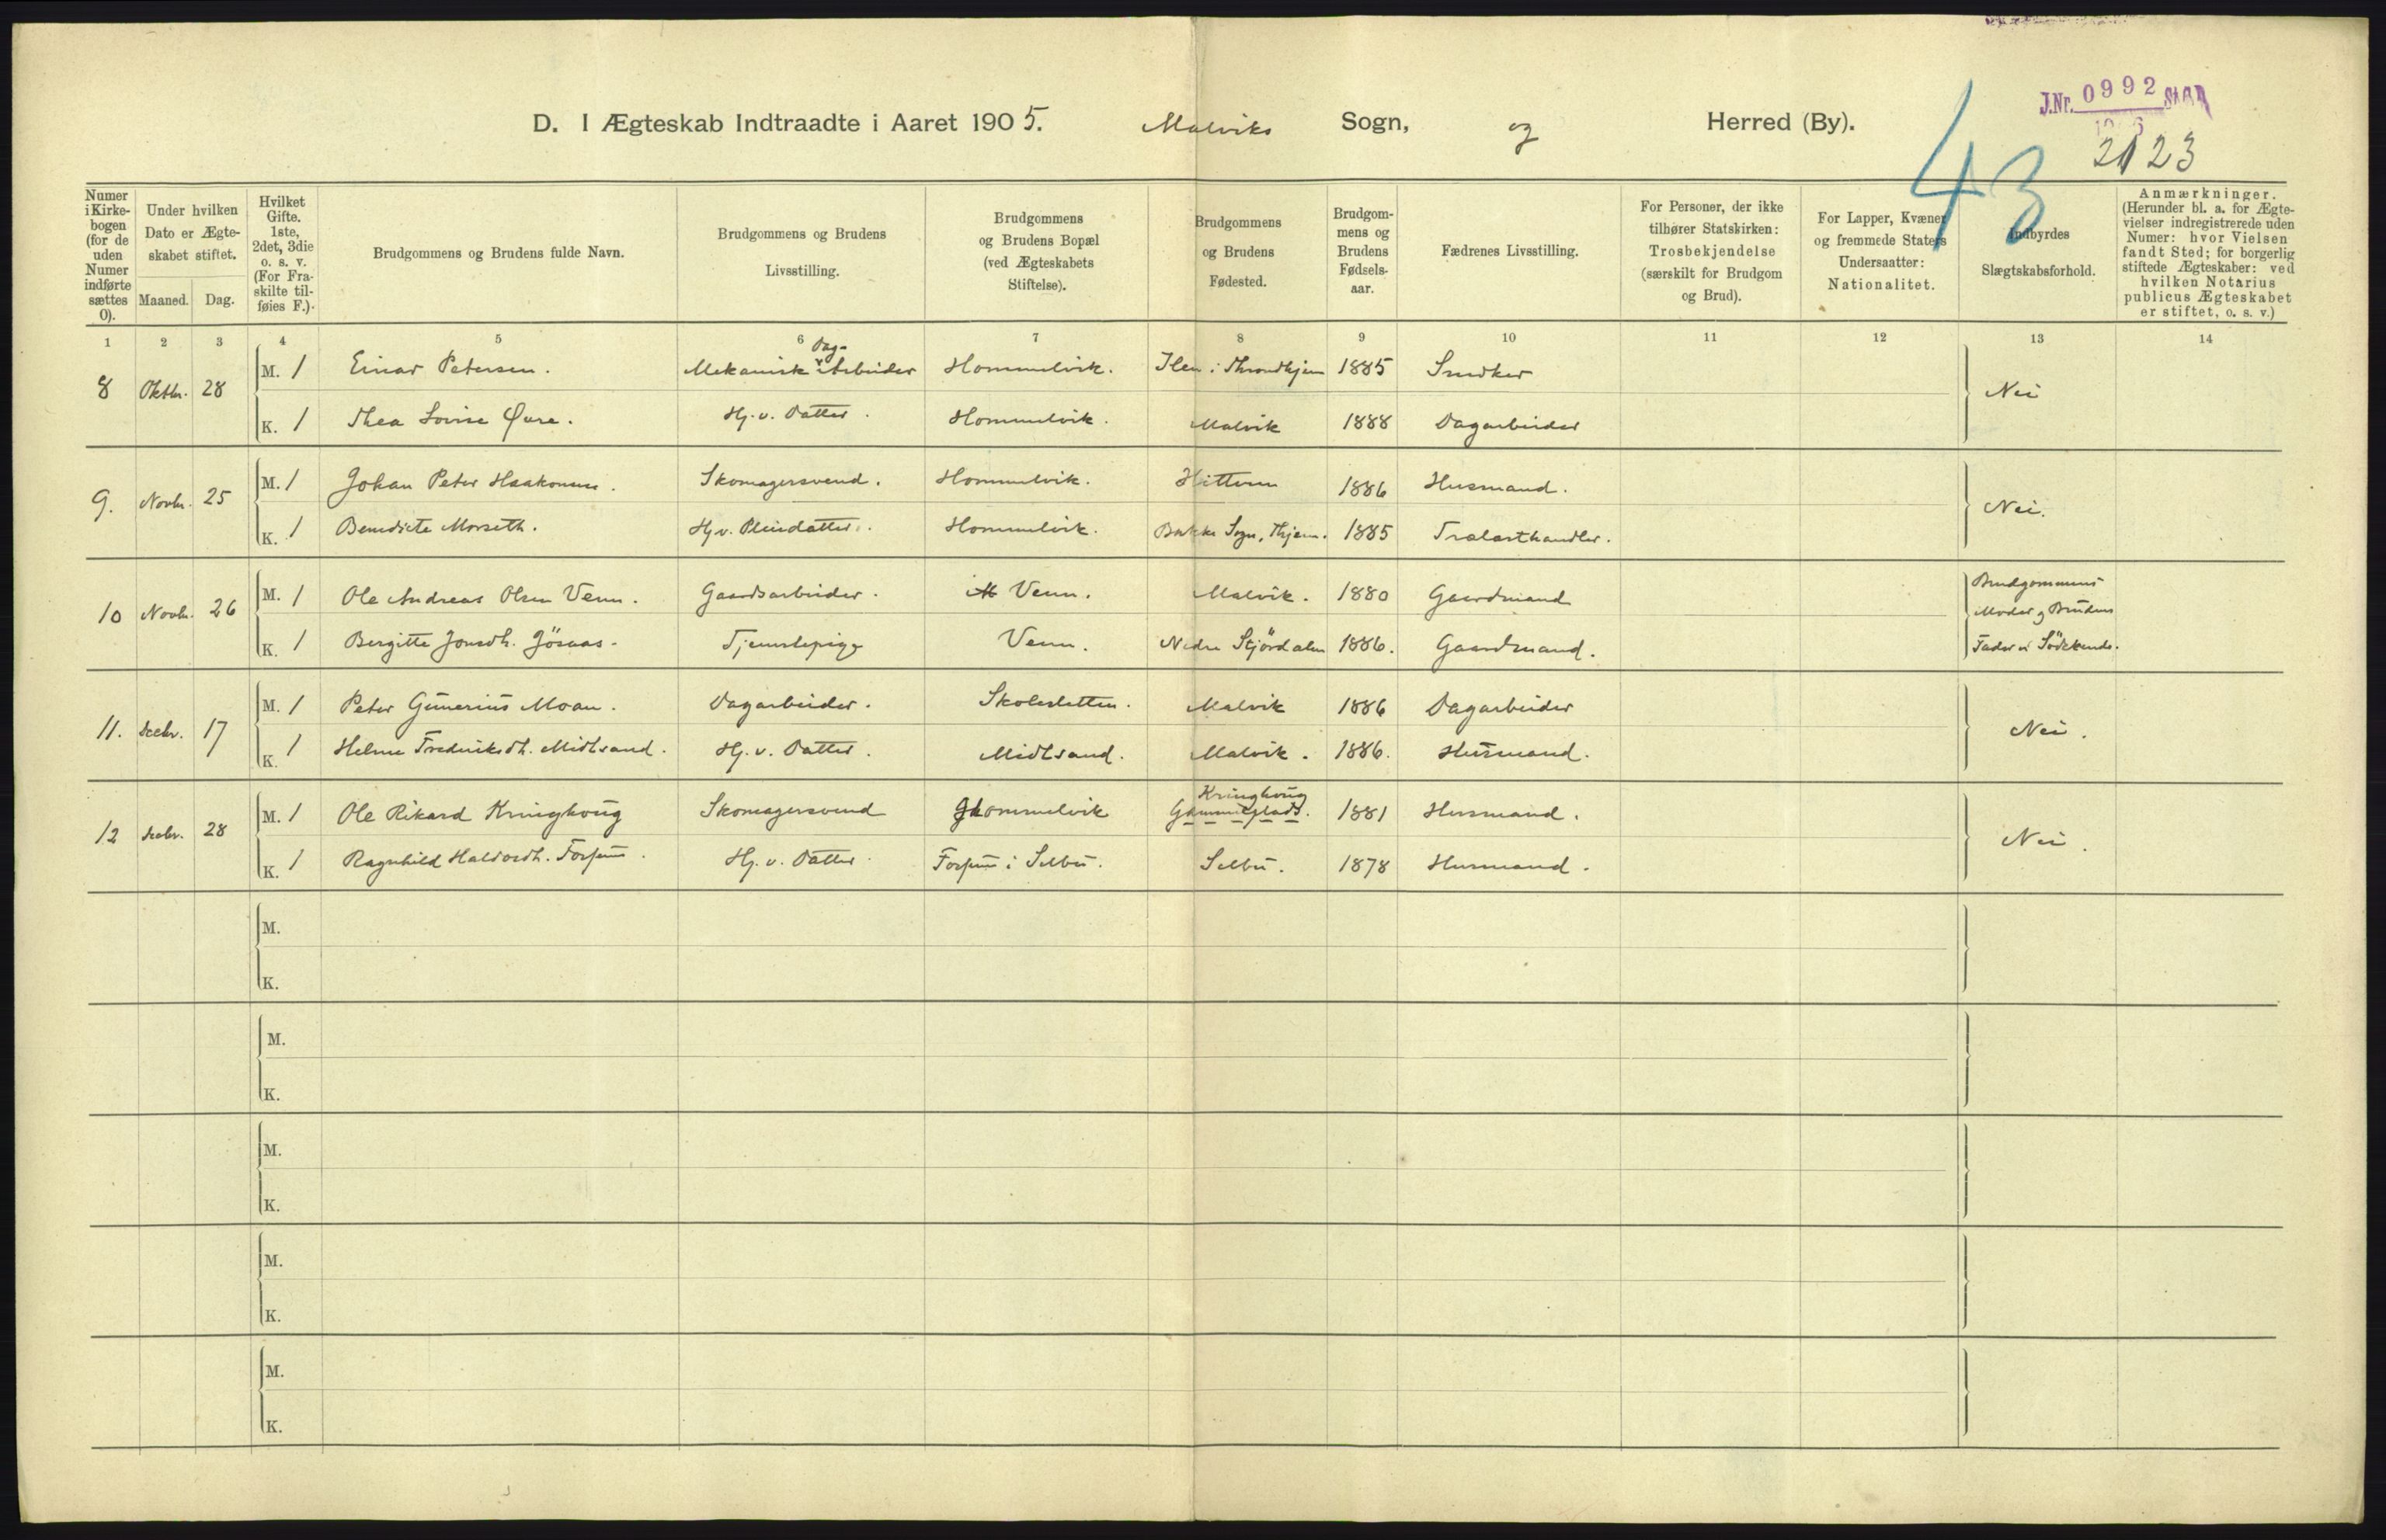 J.Nr. 0992
D. I Ægteskab Indtraadte i Aaret 1905. Malviks Sogn, og Herred (By).
43
2123
Numer i Kirkebogen (for de uden Numer indførte sættes 0).
Under hvilken Dato er Ægteskabet stiftet.
Maaned. Dag.
Hvilket Gifte. 1ste, 2det, 3die o. s. v. (For Fraskilte tilføies F.).
Brudgommens og Brudens fulde Navn.
Brudgommens og Brudens Livsstilling.
Brudgommens og Brudens Bopæl (ved Ægteskabets Stiftelse).
Brudgommens og Brudens Fødested.
Brudgommens og Brudens Fødselsaar.
Fædrenes Livsstilling.
For Personer, der ikke tilhører Statskirken: Trosbekjendelse (særskilt for Brudgom og Brud).
For Lapper, Kvæner og fremmede Staters Undersaatter: Nationalitet.
Indbyrdes Slægtskabsforhold.
Anmærkninger. (Herunder bl. a. for Ægtevielser indregistrerede uden Numer: hvor Vielsen fandt Sted; for borgerlig stiftede Ægteskaber: ved hvilken Notarius publicus Ægteskabet er stiftet, o. s. v.)
1 2 3 4 5 6 7 8 9 10 11 12 13 14
8 Oktbr. 28 M. 1 Einar Petersen. Mekanisk Dag-Arbeider Hommelvik. Ilen i Throndhjem 1885 Snedker Nei
K. 1 Thea Lovise Øvre. Hj. v. Datter. Hommelvik. Malvik 1888 Dagarbeider
9. Novbr. 25 M. 1 Johan Peter Haakonsen. Skomagersvend. Hommelvik. Hitteren 1886 Husmand. Nei.
K. 1 Benedicte Morseth. Hj. v. Pleiedatter. Hommelvik. Bakke Sogn, Thjem. 1885 Trælasthandler.
10 Novbr. 26 M. 1 Ole Andreas Olsen Venn. Gaardsarbeider. Venn. Malvik. 1880 Gaardmand Brudgommens Moder og Brudens Fader er Södskende.
K. 1 Bergitte Jonsdh. Jösaas. Tjenestepige Venn. Nedre Stjördalen 1886. Gaardmand.
11. Decbr. 17 M. 1 Peter Gunerius Moan. Dagarbeider. Skolesletten. Malvik 1886 Dagarbeider Nei.
K. 1 Helene Frederiksdh. Midtsand. Hj. v. Datter. Midtsand. Malvik. 1886. Husmand.
12 Decbr. 28 M. 1 Ole Rikard Kringhoug Skomagersvend Hommelvik Kringhoug 1881 Husmand. Nei.
K. 1 Ragnhild Haldordh. Hj. v. Datter. i Selbu. Selbu. 1878 Husmand.
M.
K.
M.
K.
M.
K.
M.
K.
M.
K.